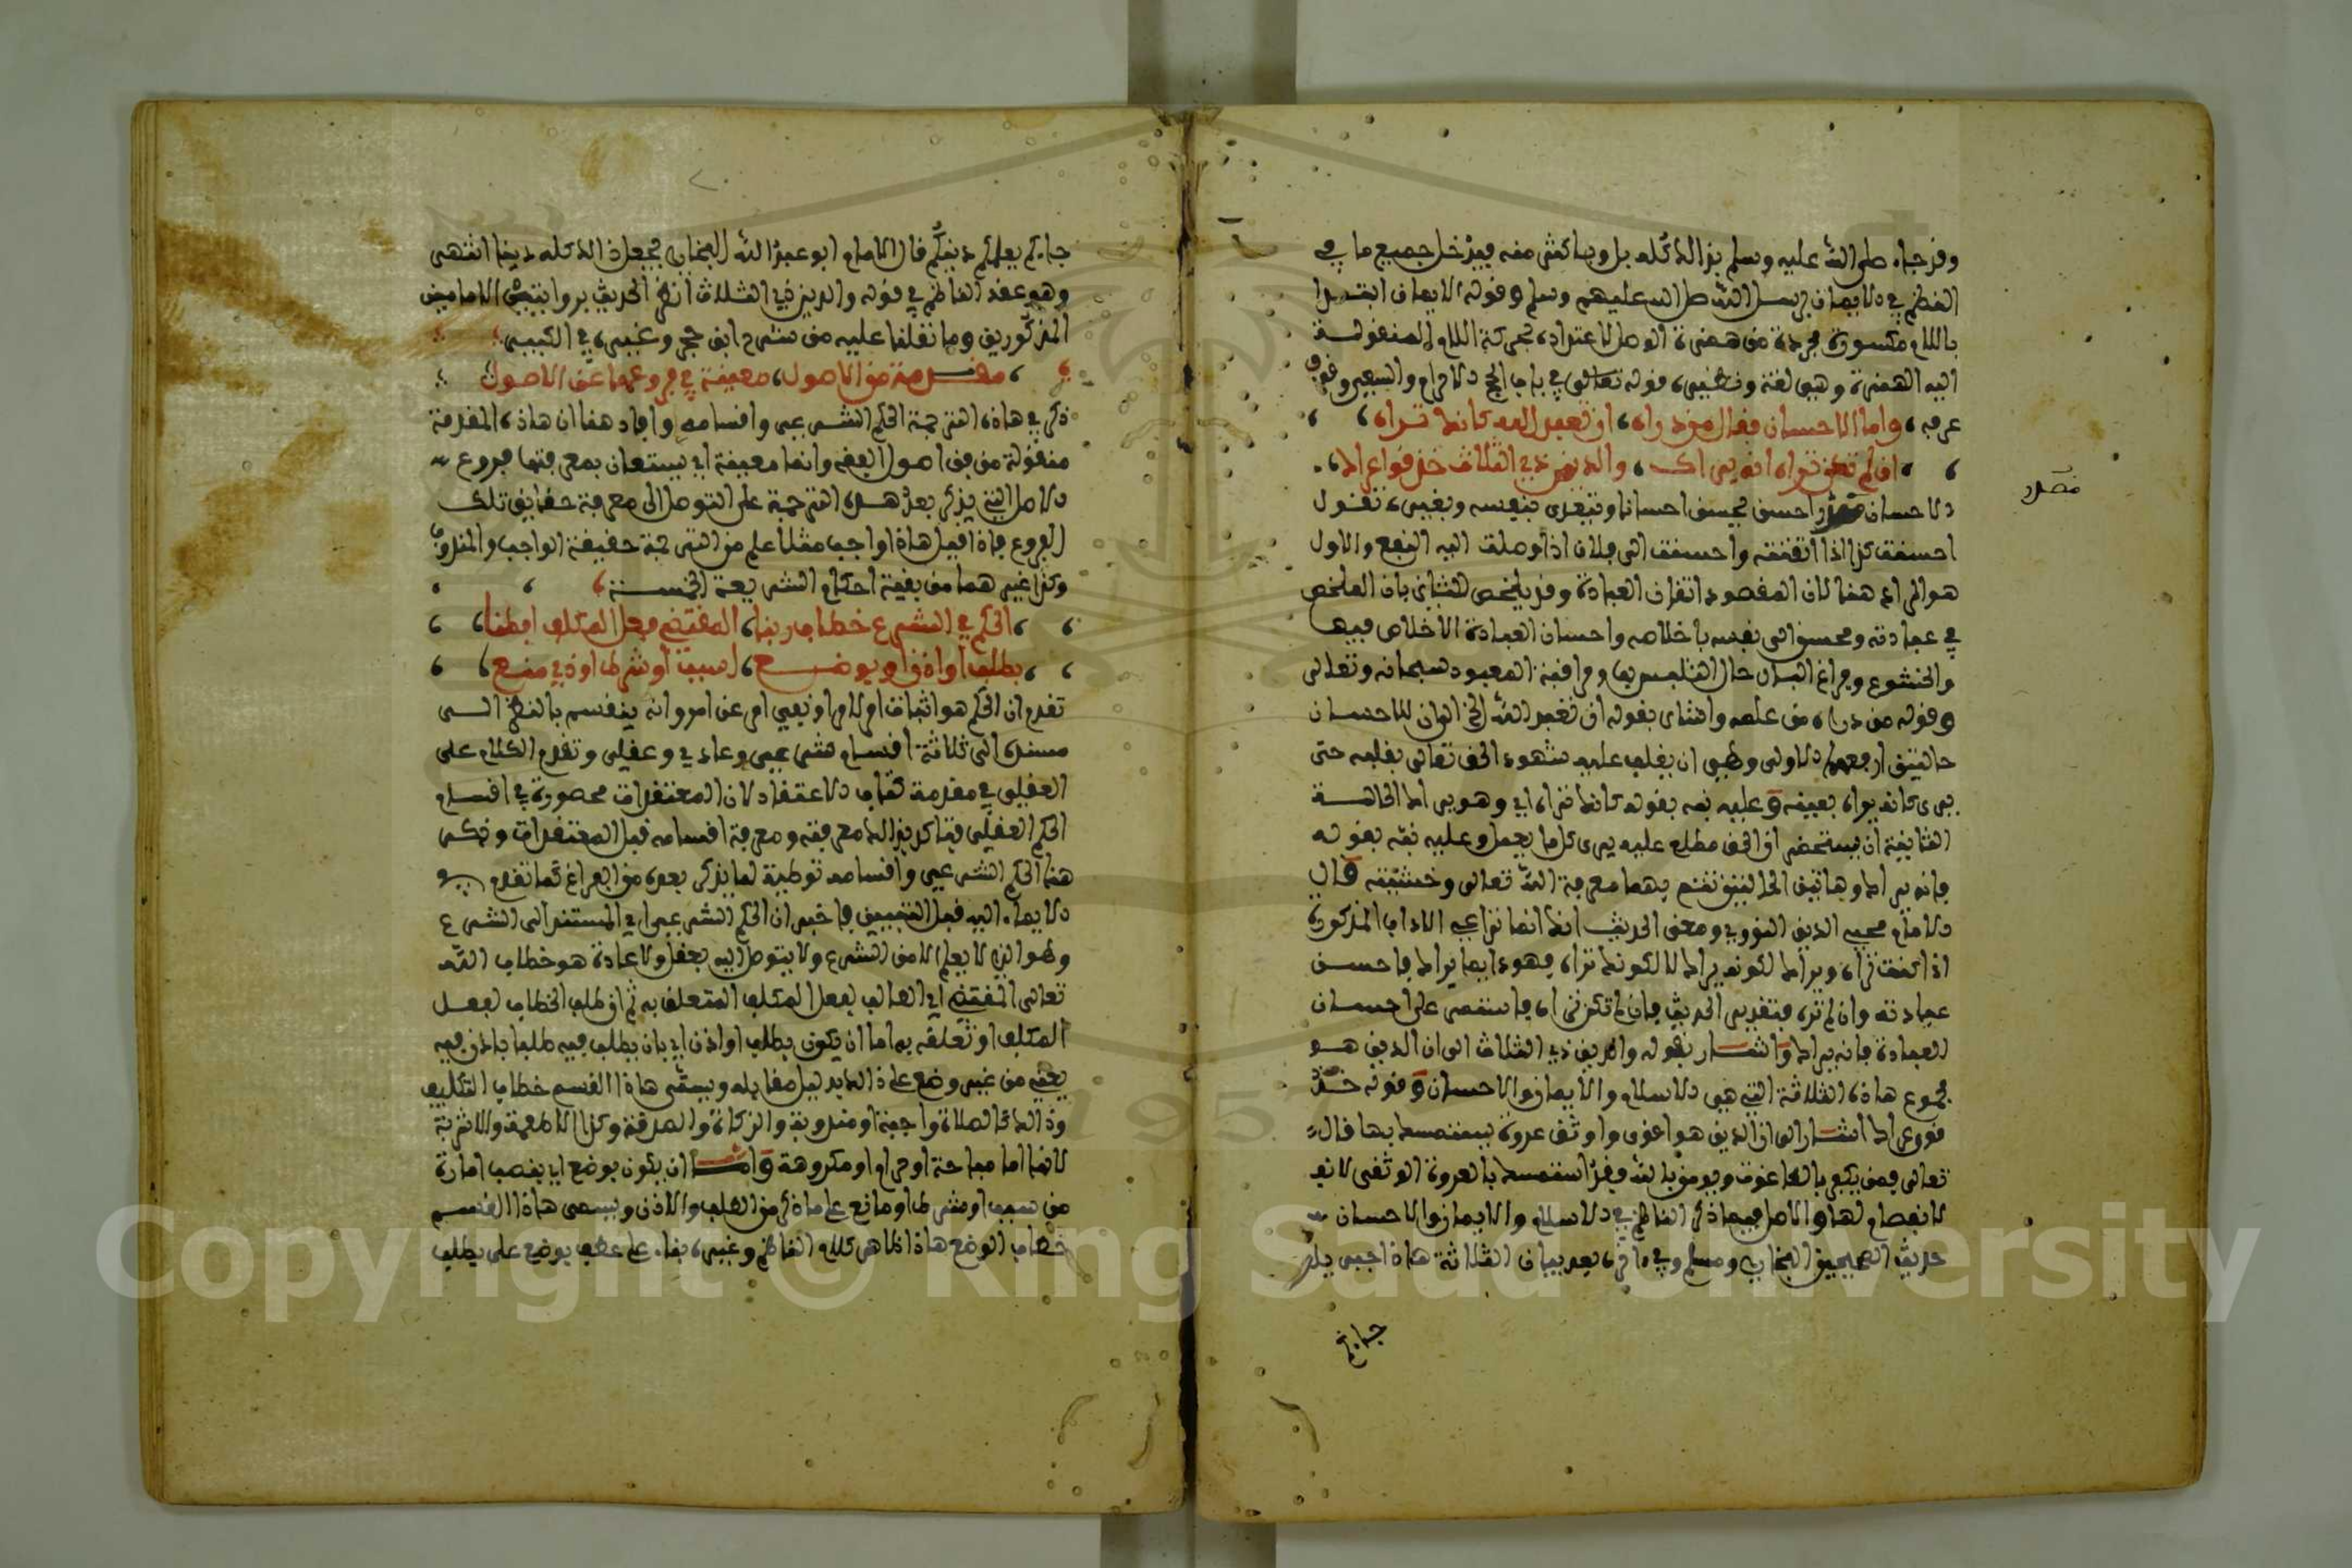 وقد جاء صلى الله عليه وسلم بذلك كله بل وبأكثر منه فيدخل جميع ما في
النظم في الايمان برسل الله صلى الله عليهم وسلم وقوله الايمان ابتدا
باللام مكسورة مجردة من همزة الوصل لاعتداده بحركة اللام المنقولة
اليه الهمزة وهي لغة ونظيره قوله تعالى في باب الحج الاحرام والسعي وقوف
عرفه، واما الاحسان فقال من دراه، ان تعبد الله كانك تراه،
، ان لم تكن تراه انه يراك، والدين ذي الثلاث خذ قوى عراك،
الاحسان مصدر احسن يحسن احسانا ويتعدى بنفسه وبغيره تقول
احسنت كذا اذا اتقنته واحسنت الى فلان اذا اوصلت اليه النفع والاول
هو المراد هنا لان المقصود اتقان العبادة وقد يلحظ الثاني بان المخلص
في عبادته محسن الى نفسه باخلاصه واحسان العبادة الاخلاص فيها
والخشوع وفراغ البال حال التلبس بها ومراقبة المعبود سبحانه وتعالى
وقوله من دراه من علمه واشار بقوله ان تعبد الله الخ الى ان للاحسان
حالتين ارفعهما الاولى وهي ان يغلب عليه شهود الحق تعالى بقلبه حتى
يرى كانه يراه بعينه وعليه نبه بقوله كانك تراه اي وهو يراك الحالة
الثانية ان يستحضر ان الحق مطلع عليه يرى كل ما يعمل وعليه نبه بقوله
فانه يراك وهاتين الحالتين تثمرهما معرفة الله تعالى وخشيته قال
الامام محيي الدين النووي ومعنى الحديث انك انما تراعي الاداب المذكورة
اذا كنت تراه ويراك لكونه يراك لا لكونك تراه فهو دايما يراك فاحسن
عبادته وان لم تره فتقدير الحديث فان لم تكن تراه فاستمر على احسان
العبادة فانه يراك واشار بقوله والدين ذي الثلاث الى ان الدين هو
مجموع هاذه الثلاثة التي هي الاسلام والايمان والاحسان وقوله خذ
قوى عراك اشار الى ان الدين هو اقوى واوثق عروة يستمسك بها قال
تعالى فمن يكفر بالطاغوت ويومن بالله فقد استمسك بالعروة الوثقى لا
لا انفصام لها والاصل فيما ذكر الناظم في الاسلام والايمان والاحسان
حديث الصحيحين البخاري ومسلم وفي ءاخره بعد بيان الثلاثة هذا جبريل
جاءكم
مصدر
جاءكم يعلمكم دينكم قال الامام ابو عبد الله البخاري فجعل ذالك كله دينا انتهى
وهو عند الناظم في قوله والدين ذي الثلاث انظر الحديث بروايتي الامامين
المذكورين وما نقلنا عليه من شرح ابن حجر وغيره في الكبير
، مقدمة من الاصول، معينة في فروعها على الوصول
ذكر في هاذه الترجمة الحكم الشرعي واقسامه وافاد هنا ان هاذه المقدمة
منقولة من فن اصول الفقه وانها معينة اي يستعان بمعرفتها فروع
الاصل التي يذكر بعد هذه الترجمة على التوصل الى معرفة حقايق تلك
الفروع فاذا قيل هاذا واجب مثلا علم من الترجمة حقيقة الواجب والمندوب
وكذا غيرهما من بقية احكام الشريعة الخمسة
، الحكم في الشرع خطاب ربنا، المقتضي فعل المكلف افطنا،
، بطلب او اذن او بوضع، لسبب او شرط او ذي منع،
تقدم ان الحكم هو اثبات امر لامر او نفي امر عن امر وانه ينقسم بالنظر الى
مسنده الى ثلاثة اقسام شرعي وعادي وعقلي وتقدم الكلام على
العقلي في مقدمة كتاب الاعتقاد لان المعتقدات محصورة في اقسام
الحكم العقلي فتاكد بذالك معرفته ومعرفة اقسامه قبل المعتقدات وذكر
هنا الحكم الشرعي واقسامه توطية لما يذكر بعده من الفراغ كما تقدم
الايماء اليه قبل البيتين فاخبر ان الحكم الشرعي اي المستند الى الشرع
وهو الذي لا يعلم الا من الشرع ولا يتوصل اليه بعقل ولا عادة هو خطاب الله
تعالى المقتضي اي الطالب لفعل المكلف المتعلق به ثم ان طلب الخطاب لفعل
المكلف او تعلقه به اما ان يكون بطلب او اذن اي بان يطلب فيه طلبا باذن فيه
يعنيه من غير وضع على ذالك دليل مقابله ويسمى هاذا القسم خطاب التكليف
وذالك كالصلاة واجبة او مندوبة والزكاة والصدقة وكذا الاطعمة والاشربة
لانها اما مباحة او حرام او مكروهة واما ان يكون بوضع اي بنصب امارة
من سبب او شرط او مانع على ما ذكر من الطلب والاذن ويسمى هاذا القسم
خطاب الوضع هاذا ظاهر كلام الناظم وغيره بناء على عطف بوضع على بطلب
Copyright © King Saud University
1957